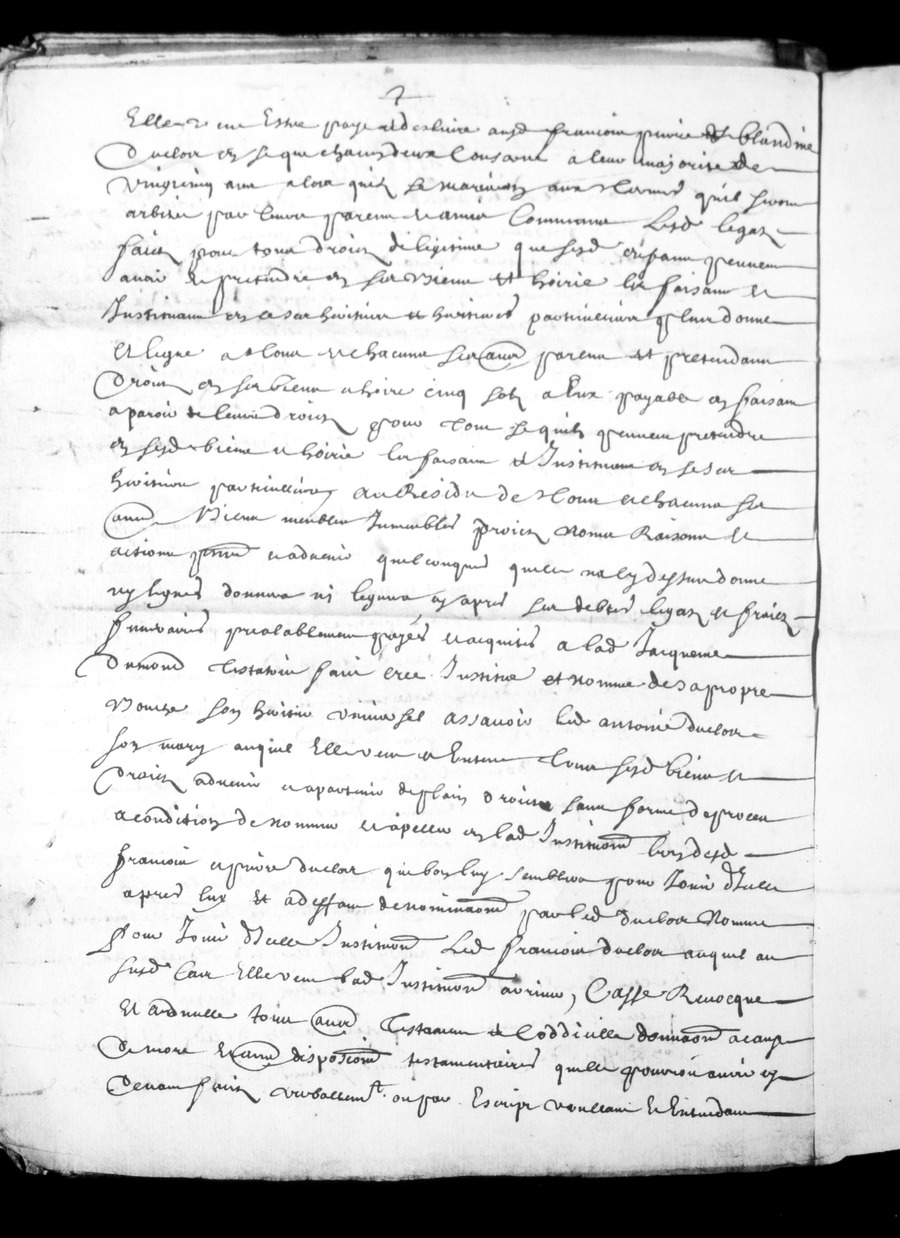 Elle veut Estre payé et deslivré ausd francois pierre et blandine
Duclos et se que chacun deux Conserne a leur majorite de
vingtcinq ans alors quils se mariront aux termes quil seront
arbitré par leurs parens et amis Communs Lesd legaz
faitz pour tous droitz de legitime que sesd enfans peuvent
avoir et pretendre en ses biens et hoirie les faisant et
Instituant en ce ses heritiers et heritieres particuliers plus donne
et legue a tous et chacuns ses autres parens et pretendans
Droitz en ses biens et hoirie cinq solz a Eux payable en faisant
aparoir de leurs droitz pour tous se quilz peuvent pretendre
en sesd biens et hoirie les faisant et Instituant en se ses
heritiers particulliers au Residu de tous et chacuns ses
autres Biens meubles Immeubles droitz noms Raisons et
actions presens et advenir quelconques quelle na cy dessus donné
ny legués donnera ni leguera cy apres ses debtes legaz et fraiz
funeraires prealablement payés et acquités a lad Jacqueme
Dumond testatrice faict cree Institue et nomme de sa propre
bouche son heritier universel assavoir led antoine duclos
son mary auquel Elle veut et Entend tous sesd biens et
Droitz advenir et apartenir de plain droit sans forme de proces
a condition de nommer et apeller en lad Institution lun desd
francois et pierre duclos que bon luy semblera pour Jouir dIcelle
apres luy et a deffaut de nomination par led duclos Nomme
pour Jouir dIcelle Institution Led francois duclos auquel au
susd cas Elle veut lad Institution arriver, Casse Revocque
Et adnulle tous autres testamens et Coddicille donnation a cause
De mort et autres disposition testamentaires quelle pourroit avoir cy
Devant faitz verballement ou par Escript voullant et Entendant